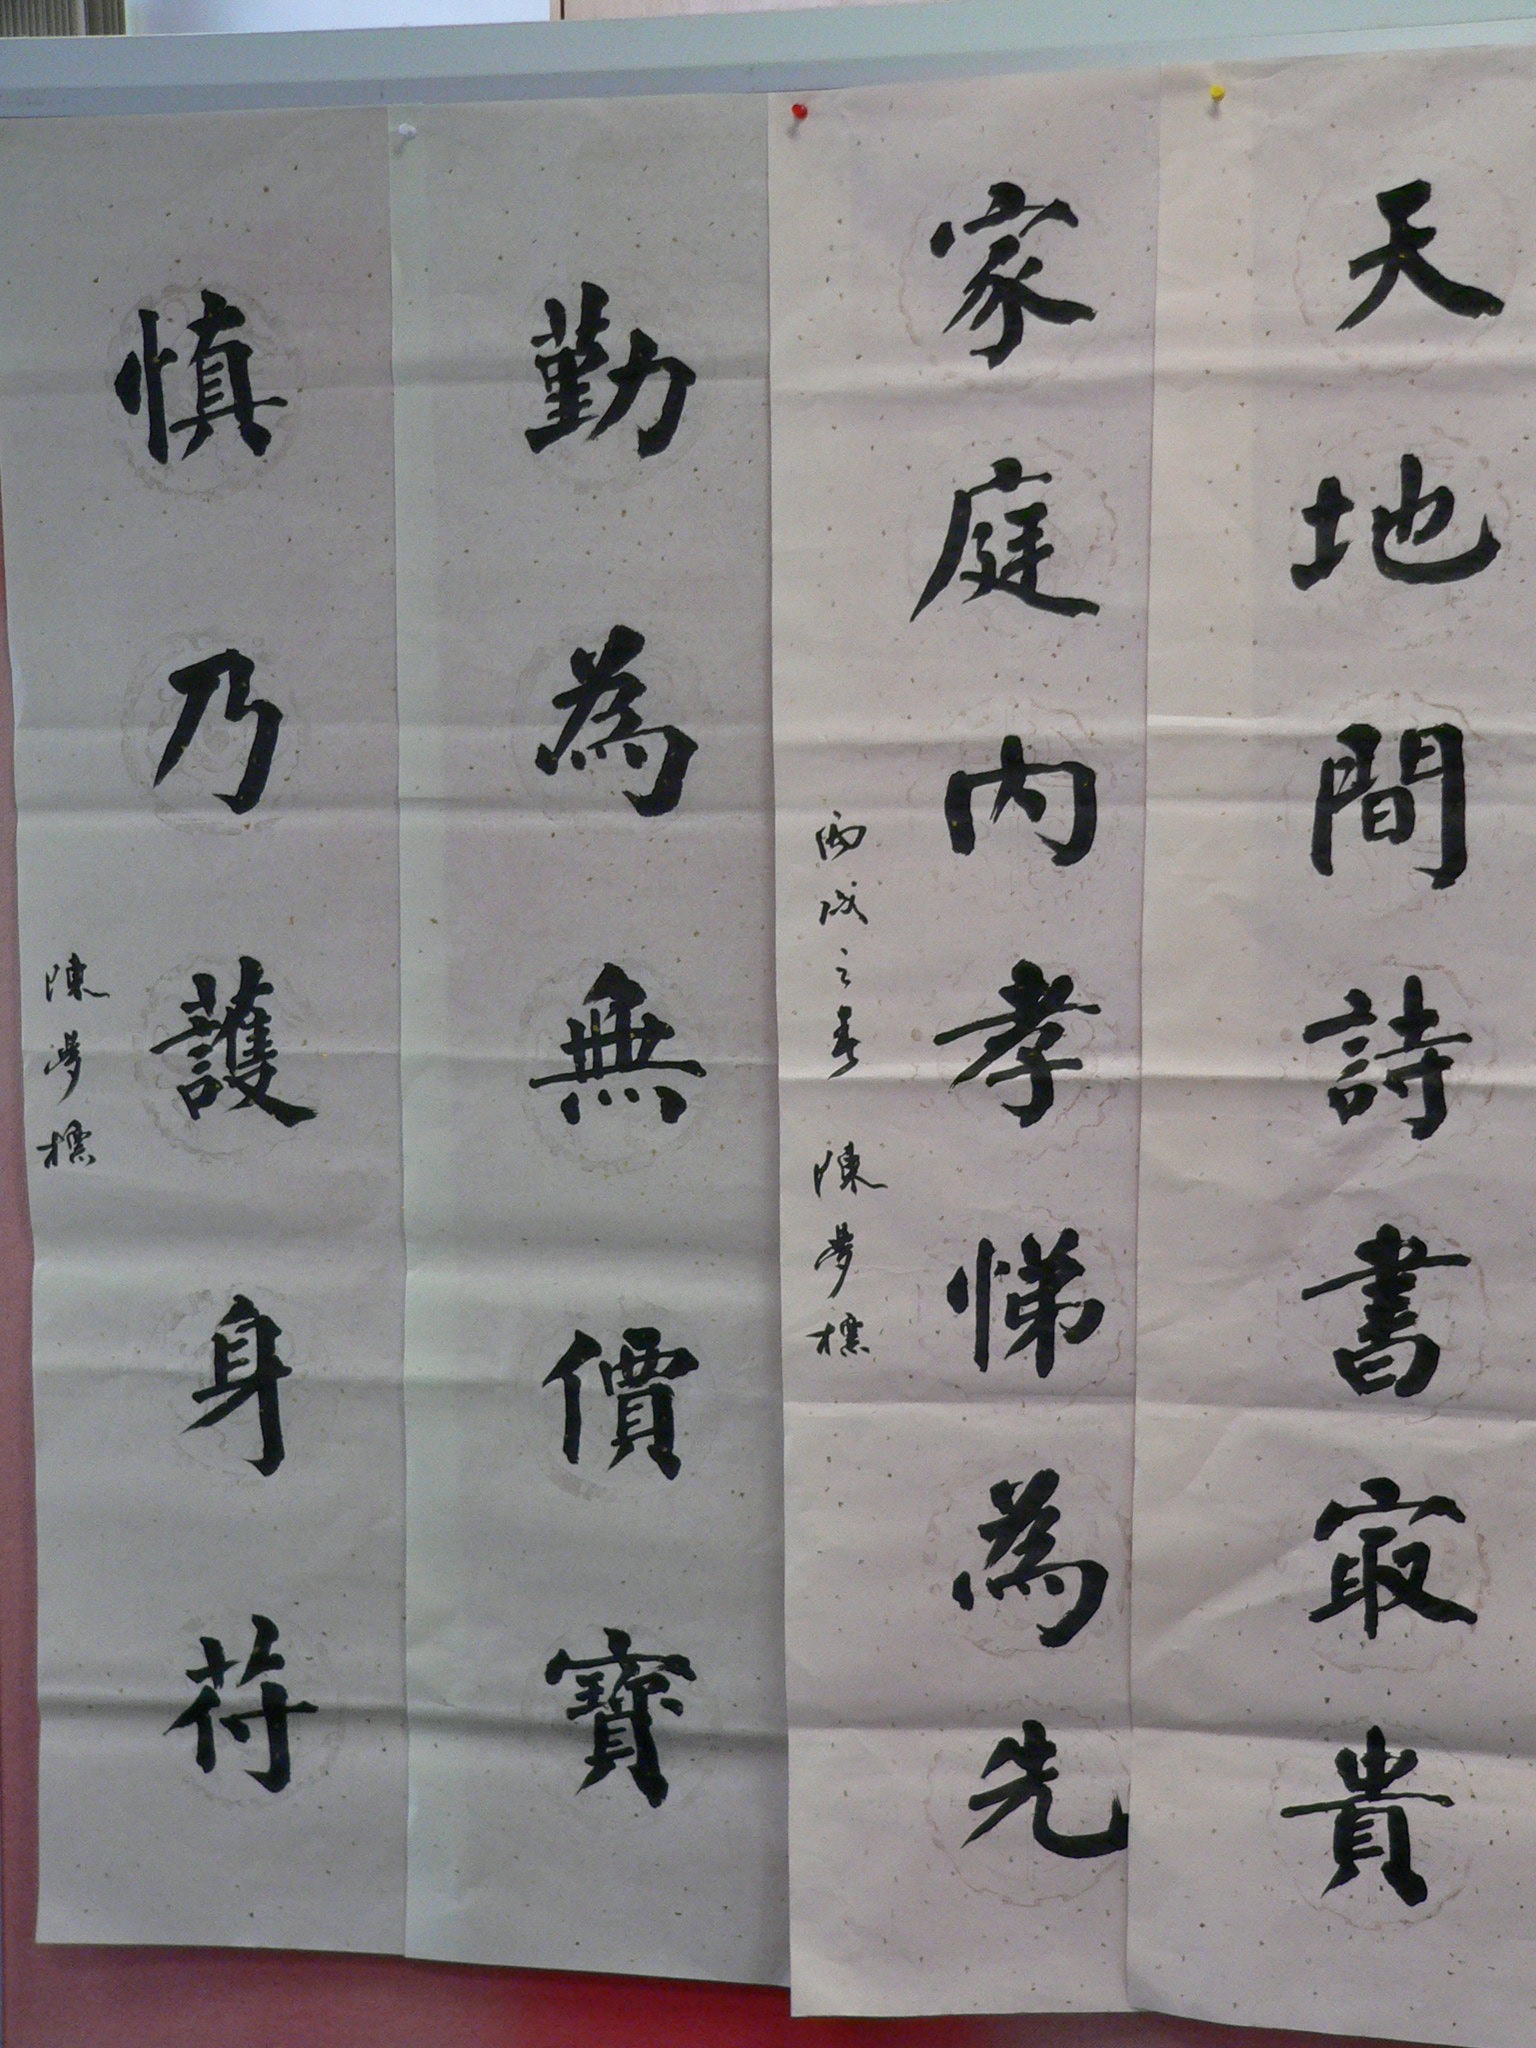 天地間詩書㝡貴
家庭内孝悌為先
丙戌之春 陳夢標
勤為無價寶
慎乃護身苻
陳夢標